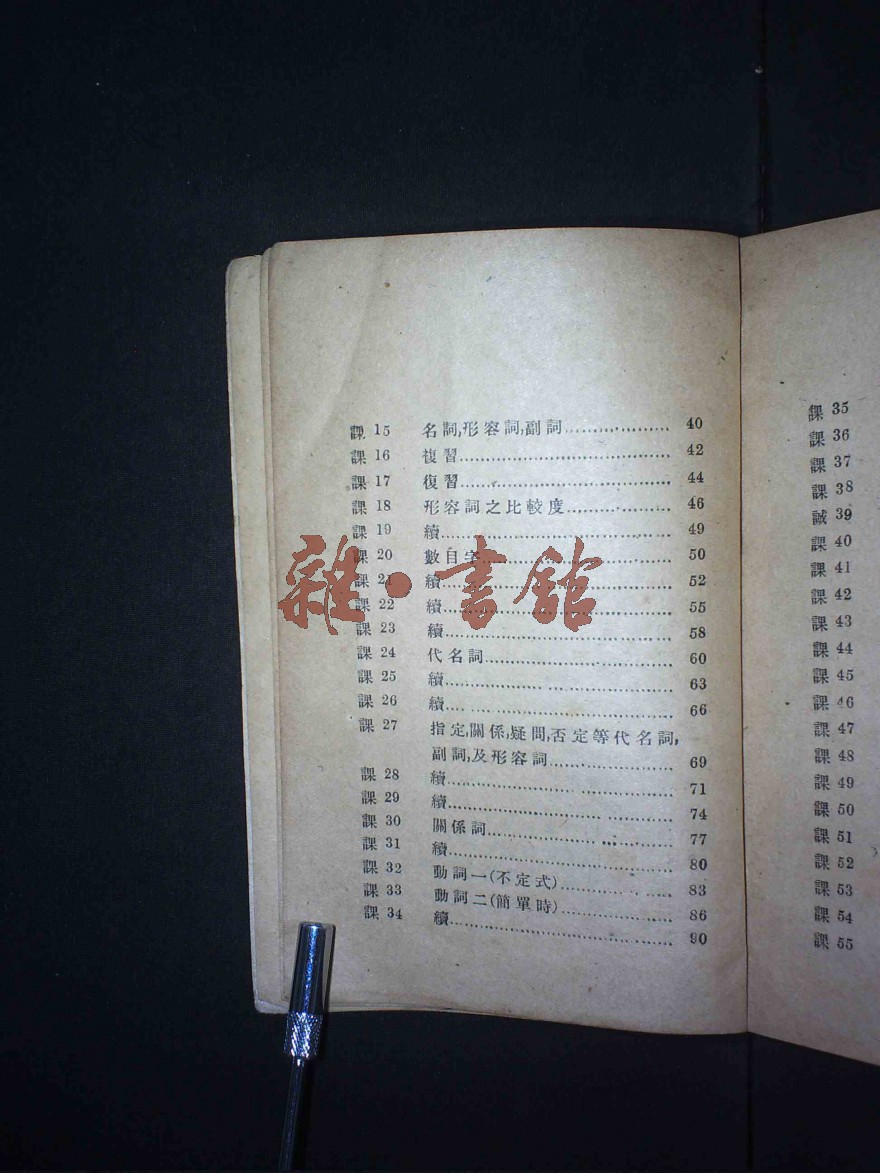 課 15 名詞,形容詞,副詞 40
課 16 複習 42
課 17 復習 44
課 18 形容詞之比較度 46
課 19 續 49
課 20 數目字 50
課 21 續 52
課 22 續 55
課 23 續 58
課 24 代名詞 60
課 25 續 63
課 26 續 66
課 27 指定,關係,疑問,否定等代名詞,
副詞,及形容詞 69
課 28 續 71
課 29 續 74
課 30 關係詞 77
課 31 續 80
課 32 動詞一(不定式) 83
課 33 動詞二(簡單時) 86
課 34 續 90
雜·書館
課 35
課 36
課 37
課 38
誠 39
課 40
課 41
課 42
課 43
課 44
課 45
課 46
課 47
課 48
課 49
課 50
課 51
課 52
課 53
課 54
課 55